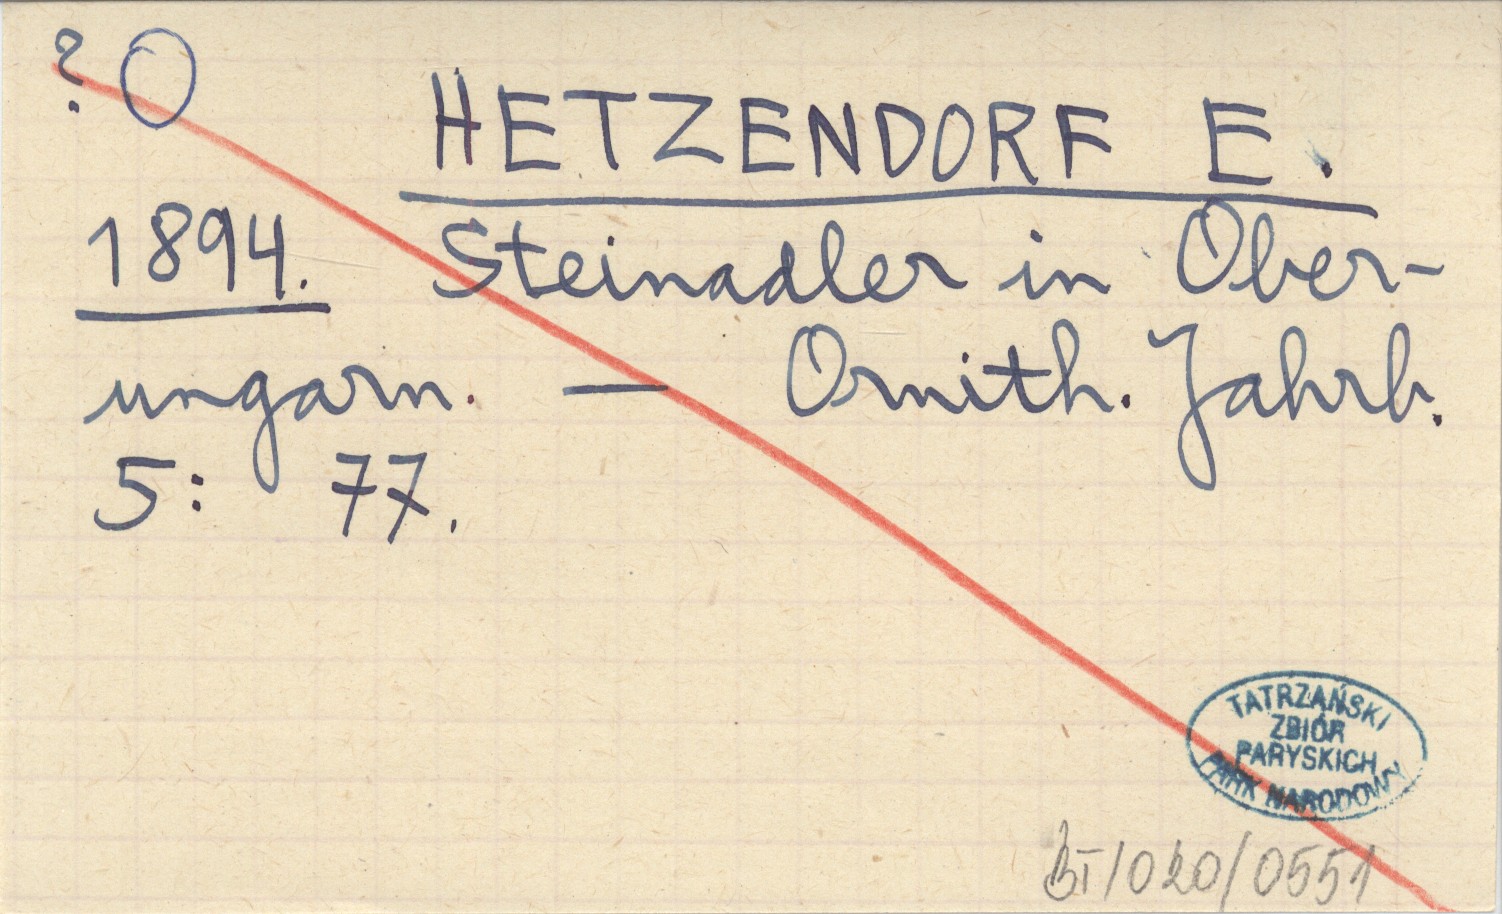 ? O
HETZENDORF E.
1894. Steinadler in Ober-
ungarn. — Ornith. Jahrb.
5: 77.
TATRZAŃSKI
ZBIÓR
PARYSKICH
PARK NARODOWY
BT/020/0551